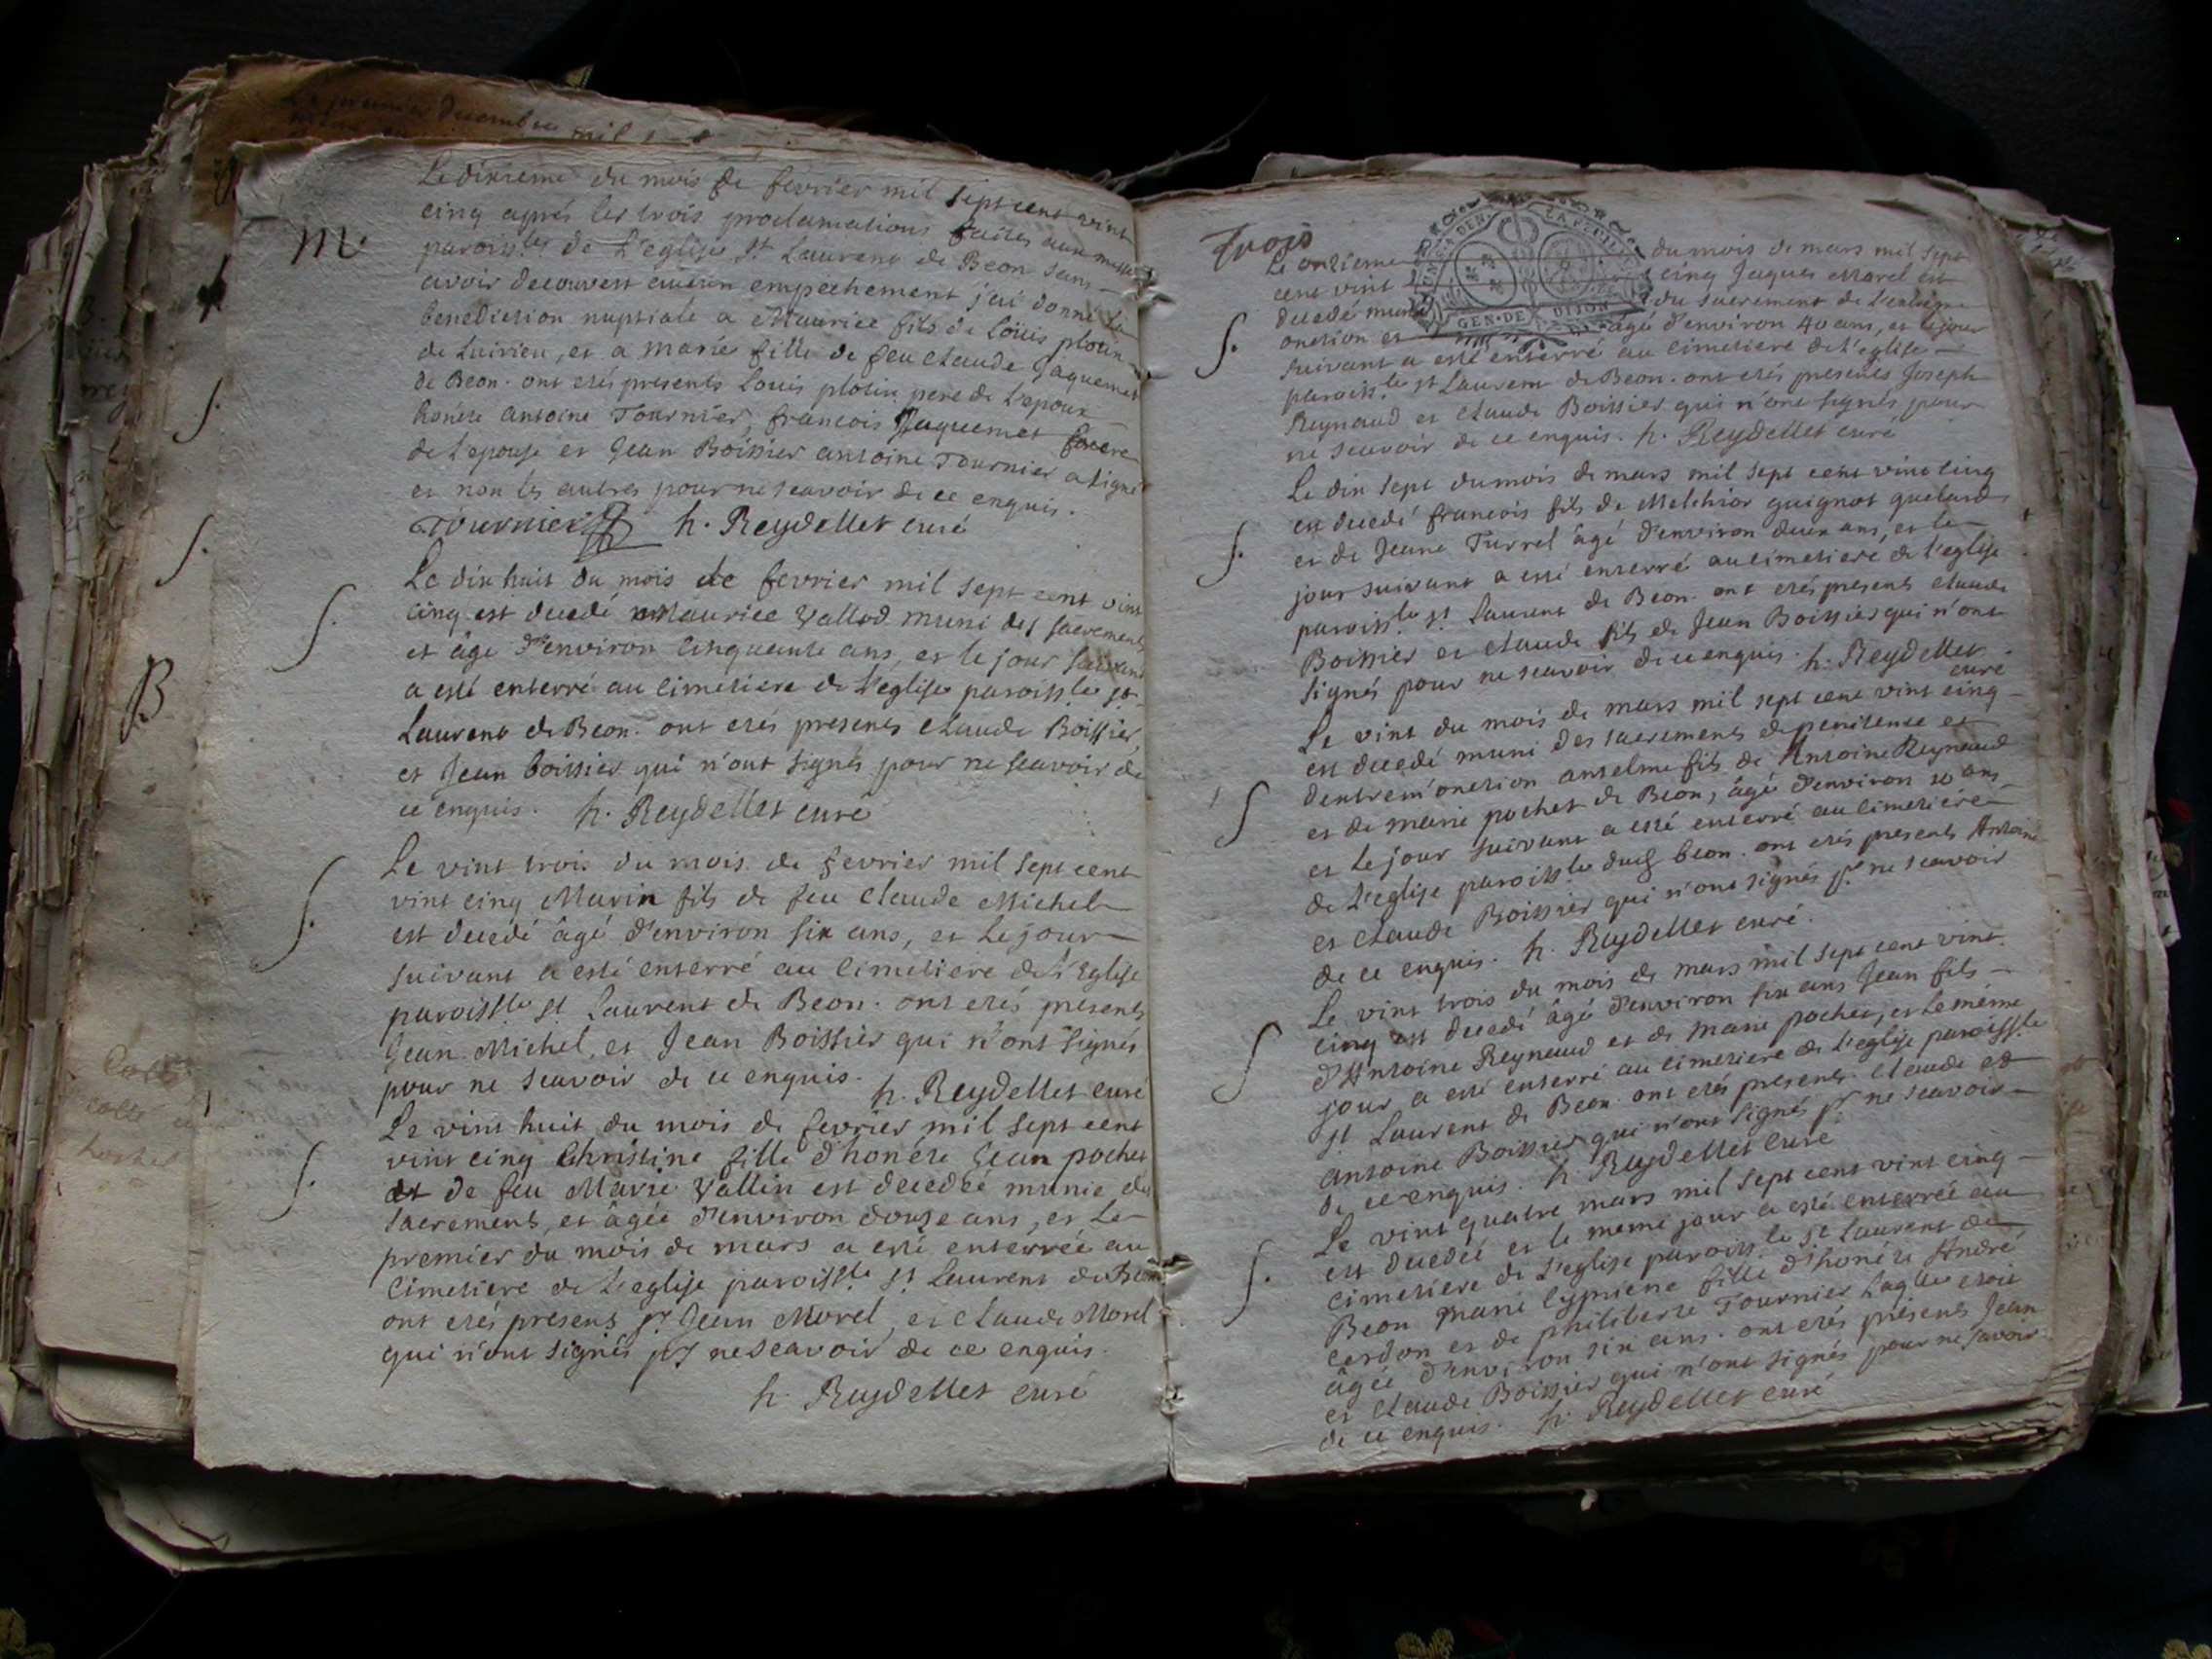 Le premier decembre mil
m.
Le dixieme du mois de fevrier mil sept cent vint
cinq aprés les trois proclamations faites aux messes
paroiss.les de L'eglise st Laurent de Beon sans
avoir decouvert aucun empechement j'ai donné la
benediction nuptiale a Maurice fils de Loüis plotin
de Luirieu, et a marie fille de feu Claude Jaquemet
de Beon. ont etés presents Louis plotin pere de L'epoux
honéte antoine Tournier, francois Jaquemet frere
de L'epouse et Jean Boissier antoine Tournier a signé
et non les autres pour ne scavoir de ce enquis.
Tournier h. Reydellet curé
Le dix huit du mois de fevrier mil sept cent vint
cinq est decedé Maurice Vallod muni des sacrements
et âgé d'environ cinquante ans, et le jour suivant
a esté enterré au cimetiere de L'eglise paroiss.le st
Laurent de Beon. ont etés presents Claude Boissier,
et Jean boissier qui n'ont signés pour ne scavoir de
ce enquis. h. Reydellet curé
Le vint trois du mois de fevrier mil sept cent
vint cinq Marin fils de feu Claude Michel
est decedé âgé d'environ six ans, et Le jour
suivant a esté enterré au Cimetiere de L'Eglise
paroiss.le st Laurent de Beon. ont etés presents
Jean Michel, et Jean Boissier qui n'ont signés
pour ne scavoir de ce enquis.
h. Reydellet curé
Le vint huit du mois de fevrier mil sept cent
vint cinq Christine fille d'honéte Jean pochet
et de feu Marie Vallin est decedée munie des
sacrements, et âgée d'environ douze ans, et Le
premier du mois de mars a esté enterrée au
Cimetiere de L'eglise paroiss.le st Laurent de Beon
ont etés presens sr Jean Morel, et Claude Morel
qui n'ont signés pr ne scavoir de ce enquis.
h. Reydellet curé
Trois
GEN·DE DIJON
Le onzieme du mois de mars mil sept
cent vint cinq Jaques Morel est
decedé muni du sacrement de L'extreme
onction et âgé d'environ 40 ans, et le jour
suivant a esté enterré au cimetiere de L'eglise
paroiss.le st Laurent de Beon. ont etés presents Joseph
Reynaud et Claude Boissier qui n'ont signés pour
ne scavoir de ce enquis. h. Reydellet curé
Le dix sept du mois de mars mil sept cent vint cinq
est decedé francois fils de Melchior guignot
et de Jeane Turrel âgé d'environ deux ans, et le
jour suivant a esté enterré au cimetiere de L'eglise
paroiss.le st Laurent de Beon. ont etés presents Claude
Boissier et Claude fils de Jean Boissier qui n'ont
signés pour ne scavoir de ce enquis. h. Reydellet
curé
Le vint du mois de mars mil sept cent vint cinq
est decedé muni des sacrements de penitence et
d'extrem'onction anselme fils de Antoine Reynaud
et de marie pochet de Beon, âgé d'environ 10 ans
et Le jour suivant a esté enterré au cimetiere
de L'eglise paroiss.le dud beon. ont etés presents Antoine
et Claude Boissier qui n'ont signés pr ne scavoir
de ce enquis. h. Reydellet curé.
Le vint trois du mois de mars mil sept cent vint
cinq est decedé âgé d'environ six ans Jean fils
d'Antoine Reynaud et de marie pochet, et Le même
jour a esté enterré au cimetiere de L'eglise paroiss.le
st Laurent de Beon. ont etés presents. Claude et
antoine Boissier qui n'ont signés pr ne scavoir
de ce enquis. h Reydellet curé
Le vint quatre mars mil sept cent vint cinq
est decedée et le meme jour a esté enterrée au
cimetiere de L'eglise paroiss.le st Laurent de
Beon marie Cypriene fille d'honéte André
Cerdon et de philiberte Tournier Laq.lle etoit
âgée d'environ six ans. ont etés présents Jean
et Claude Boissier qui n'ont signés pour ne scavoir
de ce enquis. h. Reydellet curé